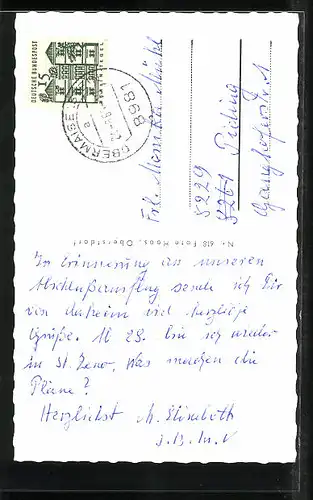 DEUTSCHE BUNDESPOST
15
8981 OBERMAISELSTEIN
a
Frl. Monika Mühl
8229
Piding
Ganghoferstr. 1
Nr. 618 Foto Moos, Oberstdorf
In Erinnerung an unseren
Abschlußausflug sende ich Dir
von daheim viel herzliche
Grüße. Ab 29. bin ich wieder
in St. Zeno, was machen die
Pläne?
Herzlichst M. Elisabeth